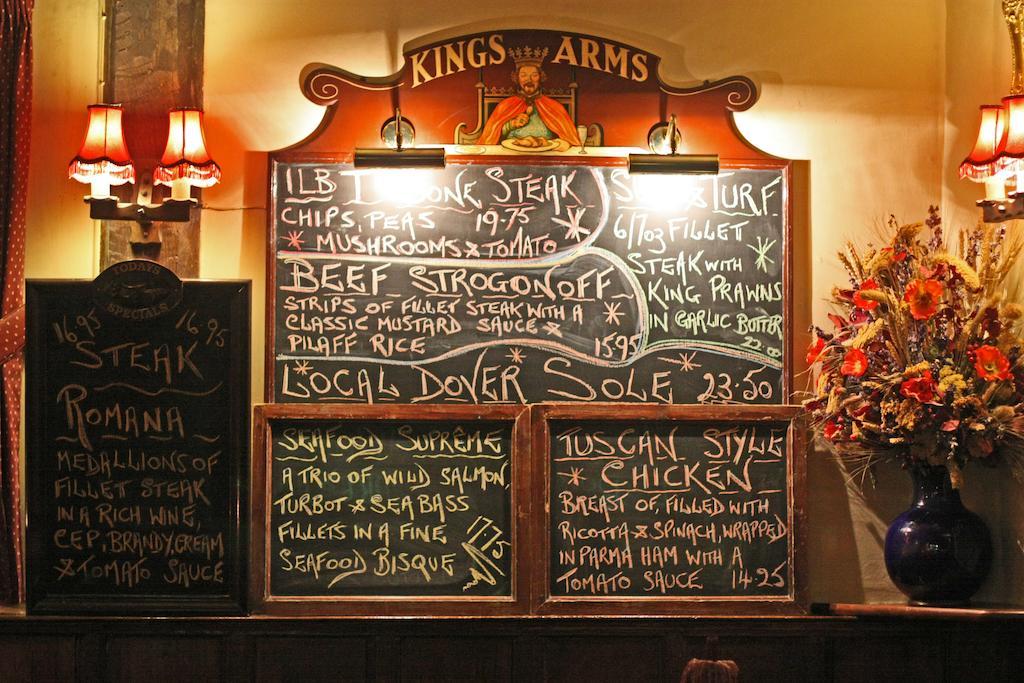 KINGS ARMS
1LB T BONE STEAK
CHIPS, PEAS 19.75
MUSHROOMS & TOMATO
SURF & TURF
6/7oz FILLET
STEAK WITH
KING PRAWNS
IN GARLIC BUTTER
22.00
BEEF STROGONOFF
STRIPS OF FILLET STEAK WITH A
CLASSIC MUSTARD SAUCE &
PILAFF RICE 15.95
LOCAL DOVER SOLE 23.50
TODAYS
SPECIALS
16.95 16.95
STEAK
ROMANA
MEDALLIONS OF
FILLET STEAK
IN A RICH WINE,
CEP, BRANDY, CREAM
& TOMATO SAUCE
SEAFOOD SUPRÊME
A TRIO OF WILD SALMON,
TURBOT & SEA BASS
FILLETS IN A FINE
SEAFOOD BISQUE 17.75
TUSCAN STYLE
CHICKEN
BREAST OF, FILLED WITH
RICOTTA & SPINACH, WRAPPED
IN PARMA HAM WITH A
TOMATO SAUCE 14.25